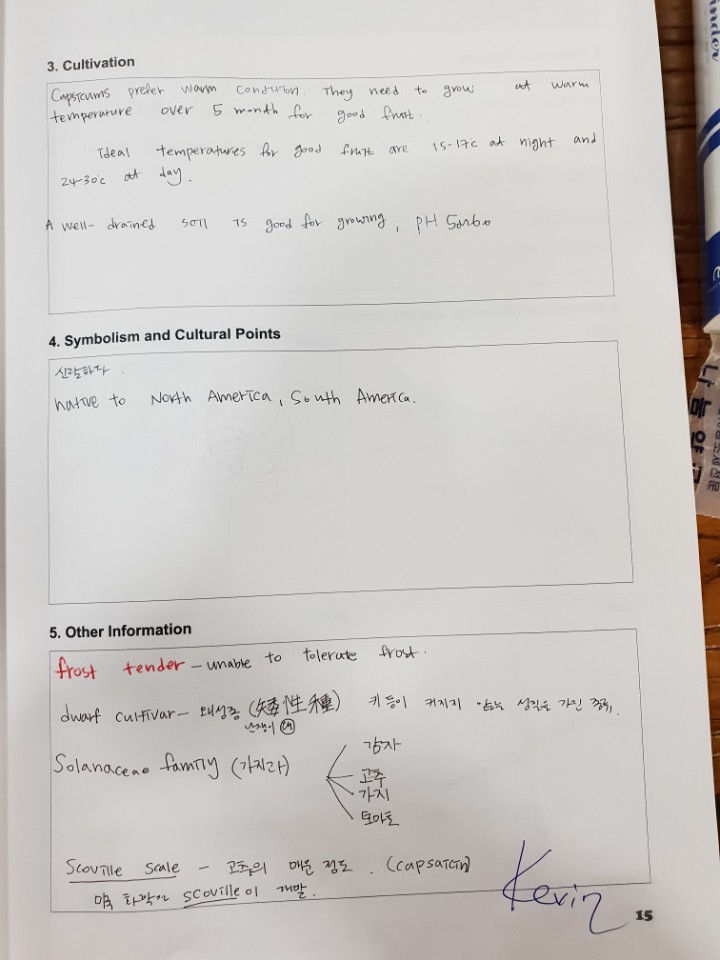 3. Cultivation
Capsicums prefer warm condition. They need to grow at warm
temperature over 5 month for good fruit.
Ideal temperatures for good fruit are 15-17c at night and
24-30°c at day.
A well-drained soil is good for growing, pH
4. Symbolism and Cultural Points
신랄하다.
native to North America, South America.
5. Other Information
frost tender - unable to tolerate frost.
dwarf cultivar - 왜성종 (矮性種) 키 등이 커지지 않는 성질을 가진 종류.
난쟁이 왜
Solanaceae family (가지과)
감자
고추
가지
토마토
Scoville scale - 고추의 매운 정도. (capsaicin)
미국 화학자 scoville이 개발.
Kevin
15
inder